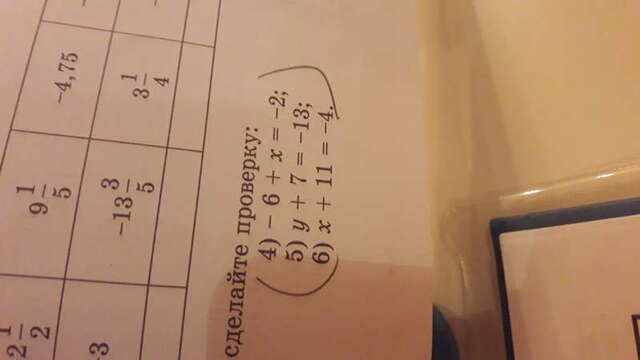 2 1/2 9 1/5 -4,75
-3 -13 3/5 3 1/4
сделайте проверку:
4) – 6 + x = –2;
5) y + 7 = –13;
6) x + 11 = –4.